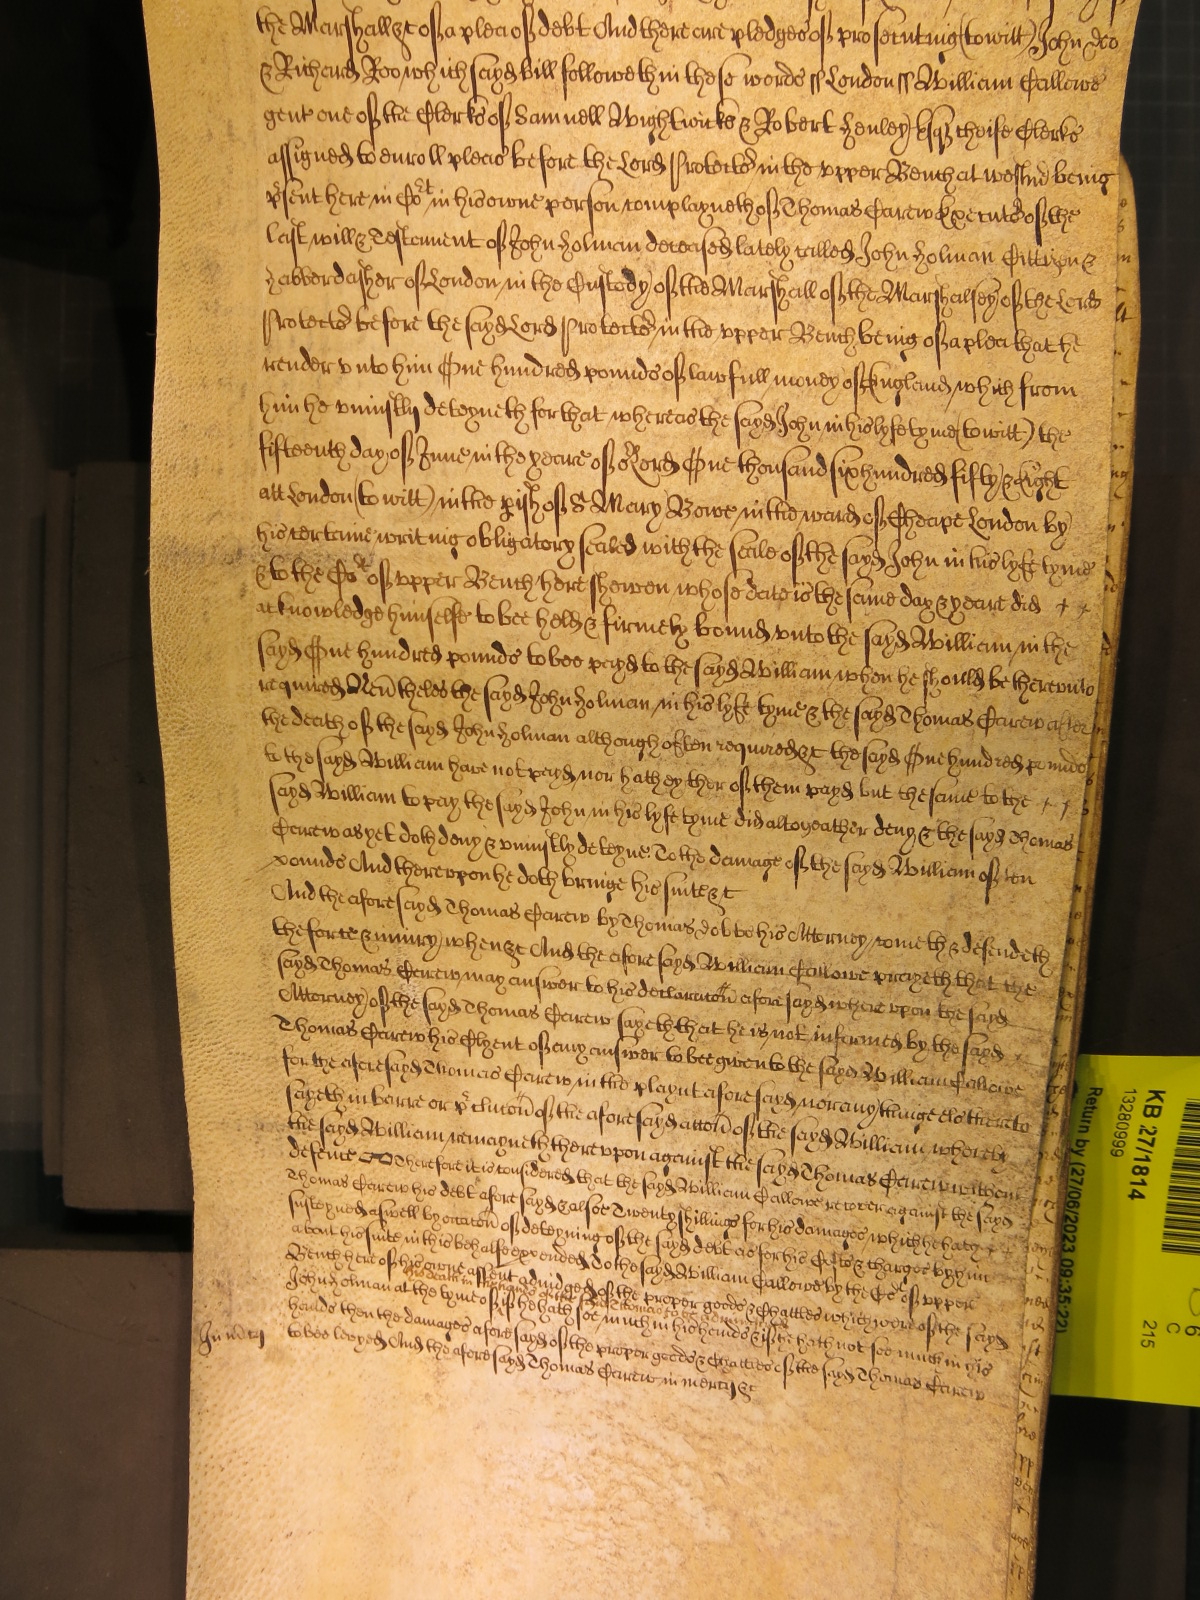 the Marshall &c of a plea of debt And there are pledges of prosecuting (to witt) John Doo
& Richard Roo, which sayd bill followeth in these words ss London ss William Callowe
gent one of the Clerks of Samuell Wightwicke & Robert Henley Esqs cheife Clerks
assigned to enroll pleas before the Lord Protector in the upper Bench at Westmr being
psent here in Cort in his owne person complayneth of Thomas Carew Executor of the
last will & Testament of John Holman deceased lately called John Holman Cittizen &
Haberdasher of London, in the Custody of the Marshall of the Marshalsey of the Lord
Protector before the sayd Lord Protector in the upper Bench being of a plea that he
render unto him One hundred pounds of lawfull money of England, which from
him he uniustly deteyneth for that whereas the sayd John in his lyfe tyme (to witt) the
fifteenth day of June in the yeare of or Lord One thousand six hundred fifty & Eight
att London (to witt) in the pish of St Mary Bowe in the ward of Cheape London by
his certaine writing obligatory sealed with the seale of the sayd John in his lyfe tyme
& to the Cort of upper Bench here shewen whose date is the same day & yeare did
acknowledge himselfe to bee held & firmely bound unto the sayd William in the
sayd One hundred pounds to bee payd to the sayd William when he should be thereunto
required Neutheles the sayd John Holman in his lyfe tyme & the sayd Thomas Carew after
the death of the sayd John Holman although often required &c the sayd One hundred pounds
to the sayd William have not payd, nor hath eyther of them payd but the same to the
sayd William to pay the sayd John in his lyfe tyme did altogeather deny & the sayd Thomas
Carew as yet doth deny & uniustly deteyne To the damage of the sayd William of ten
pounds And thereupon he doth bringe his suite &c
And the aforesayd Thomas Carew by Thomas his Attorney, cometh & defendeth
the force & iniury, when &c And the aforesayd William Callowe prayeth that the
sayd Thomas Carew may answer to his declaracon aforesayd whereupon the sayd
Attorney of the sayd Thomas Carew sayeth that he is not informed by the sayd
Thomas Carew his Clyent of any answer to bee given to the sayd William Callowe
for the aforesayd Thomas Carew in the playnt aforesayd, nor any thinge els thereto
sayeth in barre or pclusion of the aforesayd accon of the sayd William, whereby
the sayd William remayneth thereupon against the sayd Thomas Carew without
defence Therefore it is considered that the sayd William Callowe recover against the sayd
Thomas Carew his debt aforesayd & alsoe Twenty shillings for his damages, which he hath
susteyned aswell by occacon of deteyning of the sayd debt as for his Costs & charges by him
about his suite in this behalfe expended To the sayd William Callowe by the Cort of upper
Bench here of his owne assent adiudged of the proper goods & Chattles which were of the sayd
his death in the hands of the sayd Thomas to be administred
John Holman at the tyme of, if he hath soe much in his hands & if he hath not soe much in his
hands then the damages aforesayd of the proper goods & Chattles of the sayd Thomas Carew
to bee levyed And the aforesayd Thomas Carew in mercy &c
In mercy
KB 27/1814
13280999
Return by (27/06/2023 09:35:22)
C
215